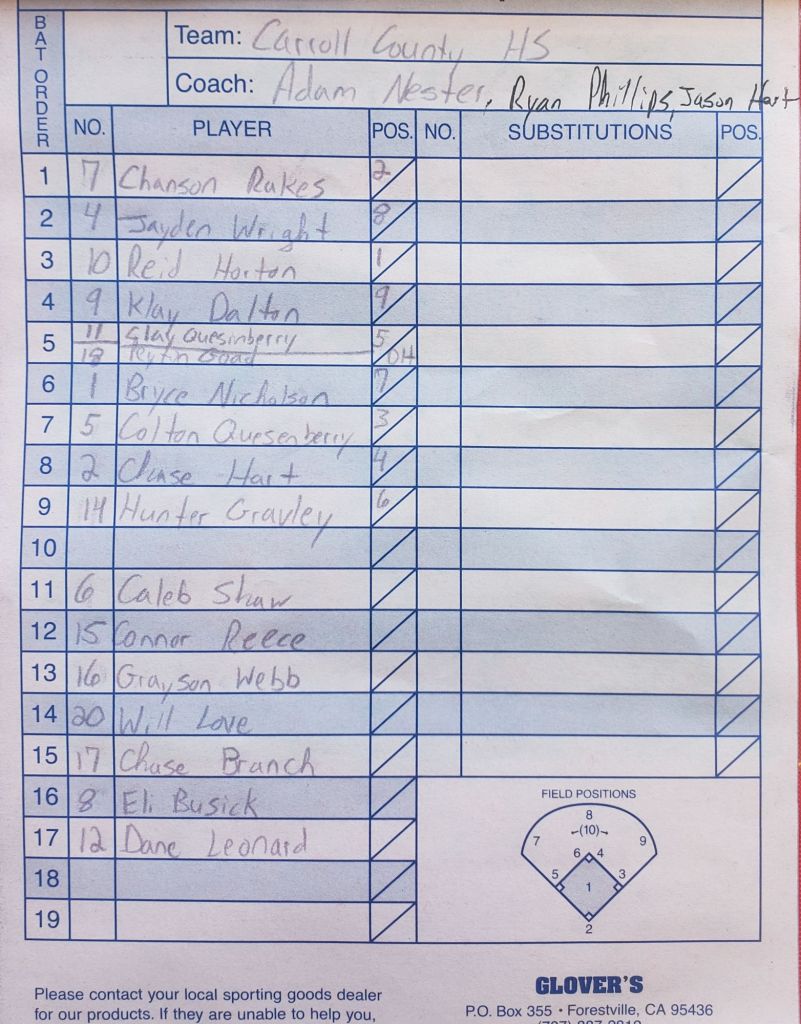 BAT ORDER
Team: Carroll County HS
Coach: Adam Nester, Ryan Phillips, Jason Hart
NO. PLAYER POS. NO. SUBSTITUTIONS POS.
1 7 Chanson Rakes 2
2 4 Jayden Wright 8
3 10 Reid Horton 1
4 9 Klay Dalton 9
5 11 Clay Quesinberry 5
18 Goad DH
6 1 Bryce Nicholson 7
7 5 Colton Quesenberry 3
8 2 Chase Hart 4
9 14 Hunter Gravley 6
10
11 6 Caleb Shaw
12 15 Connor Reece
13 16 Grayson Webb
14 20 Will Love
15 17 Chase Branch
16 8 Eli Busick
17 12 Dane Leonard
18
19
FIELD POSITIONS
8
(10)
7 9
6 4
5 1 3
2
Please contact your local sporting goods dealer
for our products. If they are unable to help you,
GLOVER'S
P.O. Box 355 • Forestville, CA 95436